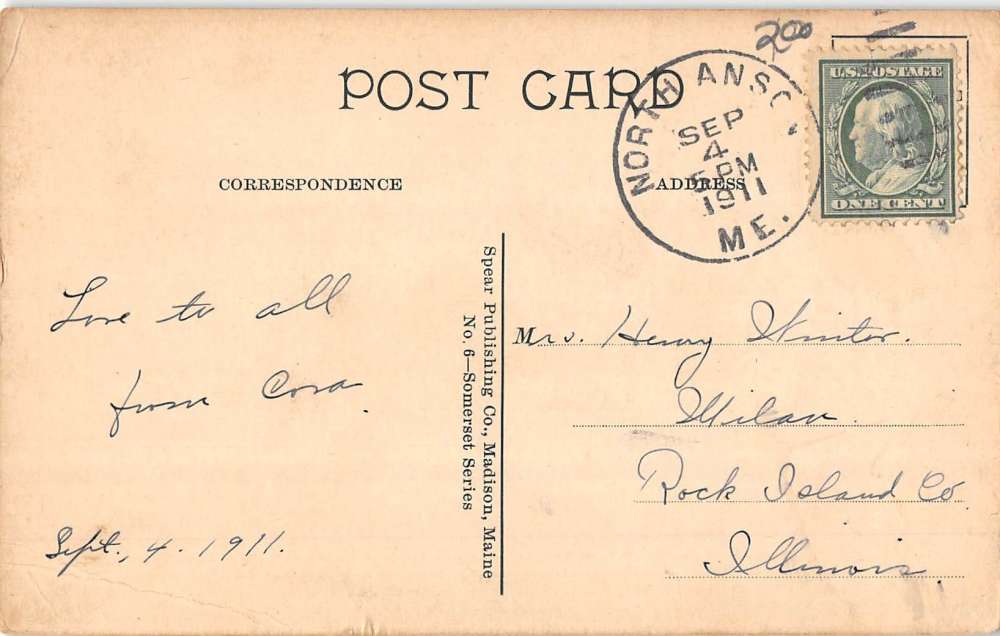 200
POST CARD
NORTH ANSO
SEP
4
5 PM
1911
ME.
U.S. POSTAGE
ONE CENT
CORRESPONDENCE
ADDRESS
Love to all
from Cora.
Sept., 4. 1911.
Spear Publishing Co., Madison, Maine
No. 6—Somerset Series
Mrs. Henry Winter.
Milan.
Rock Island Co
Illinois.